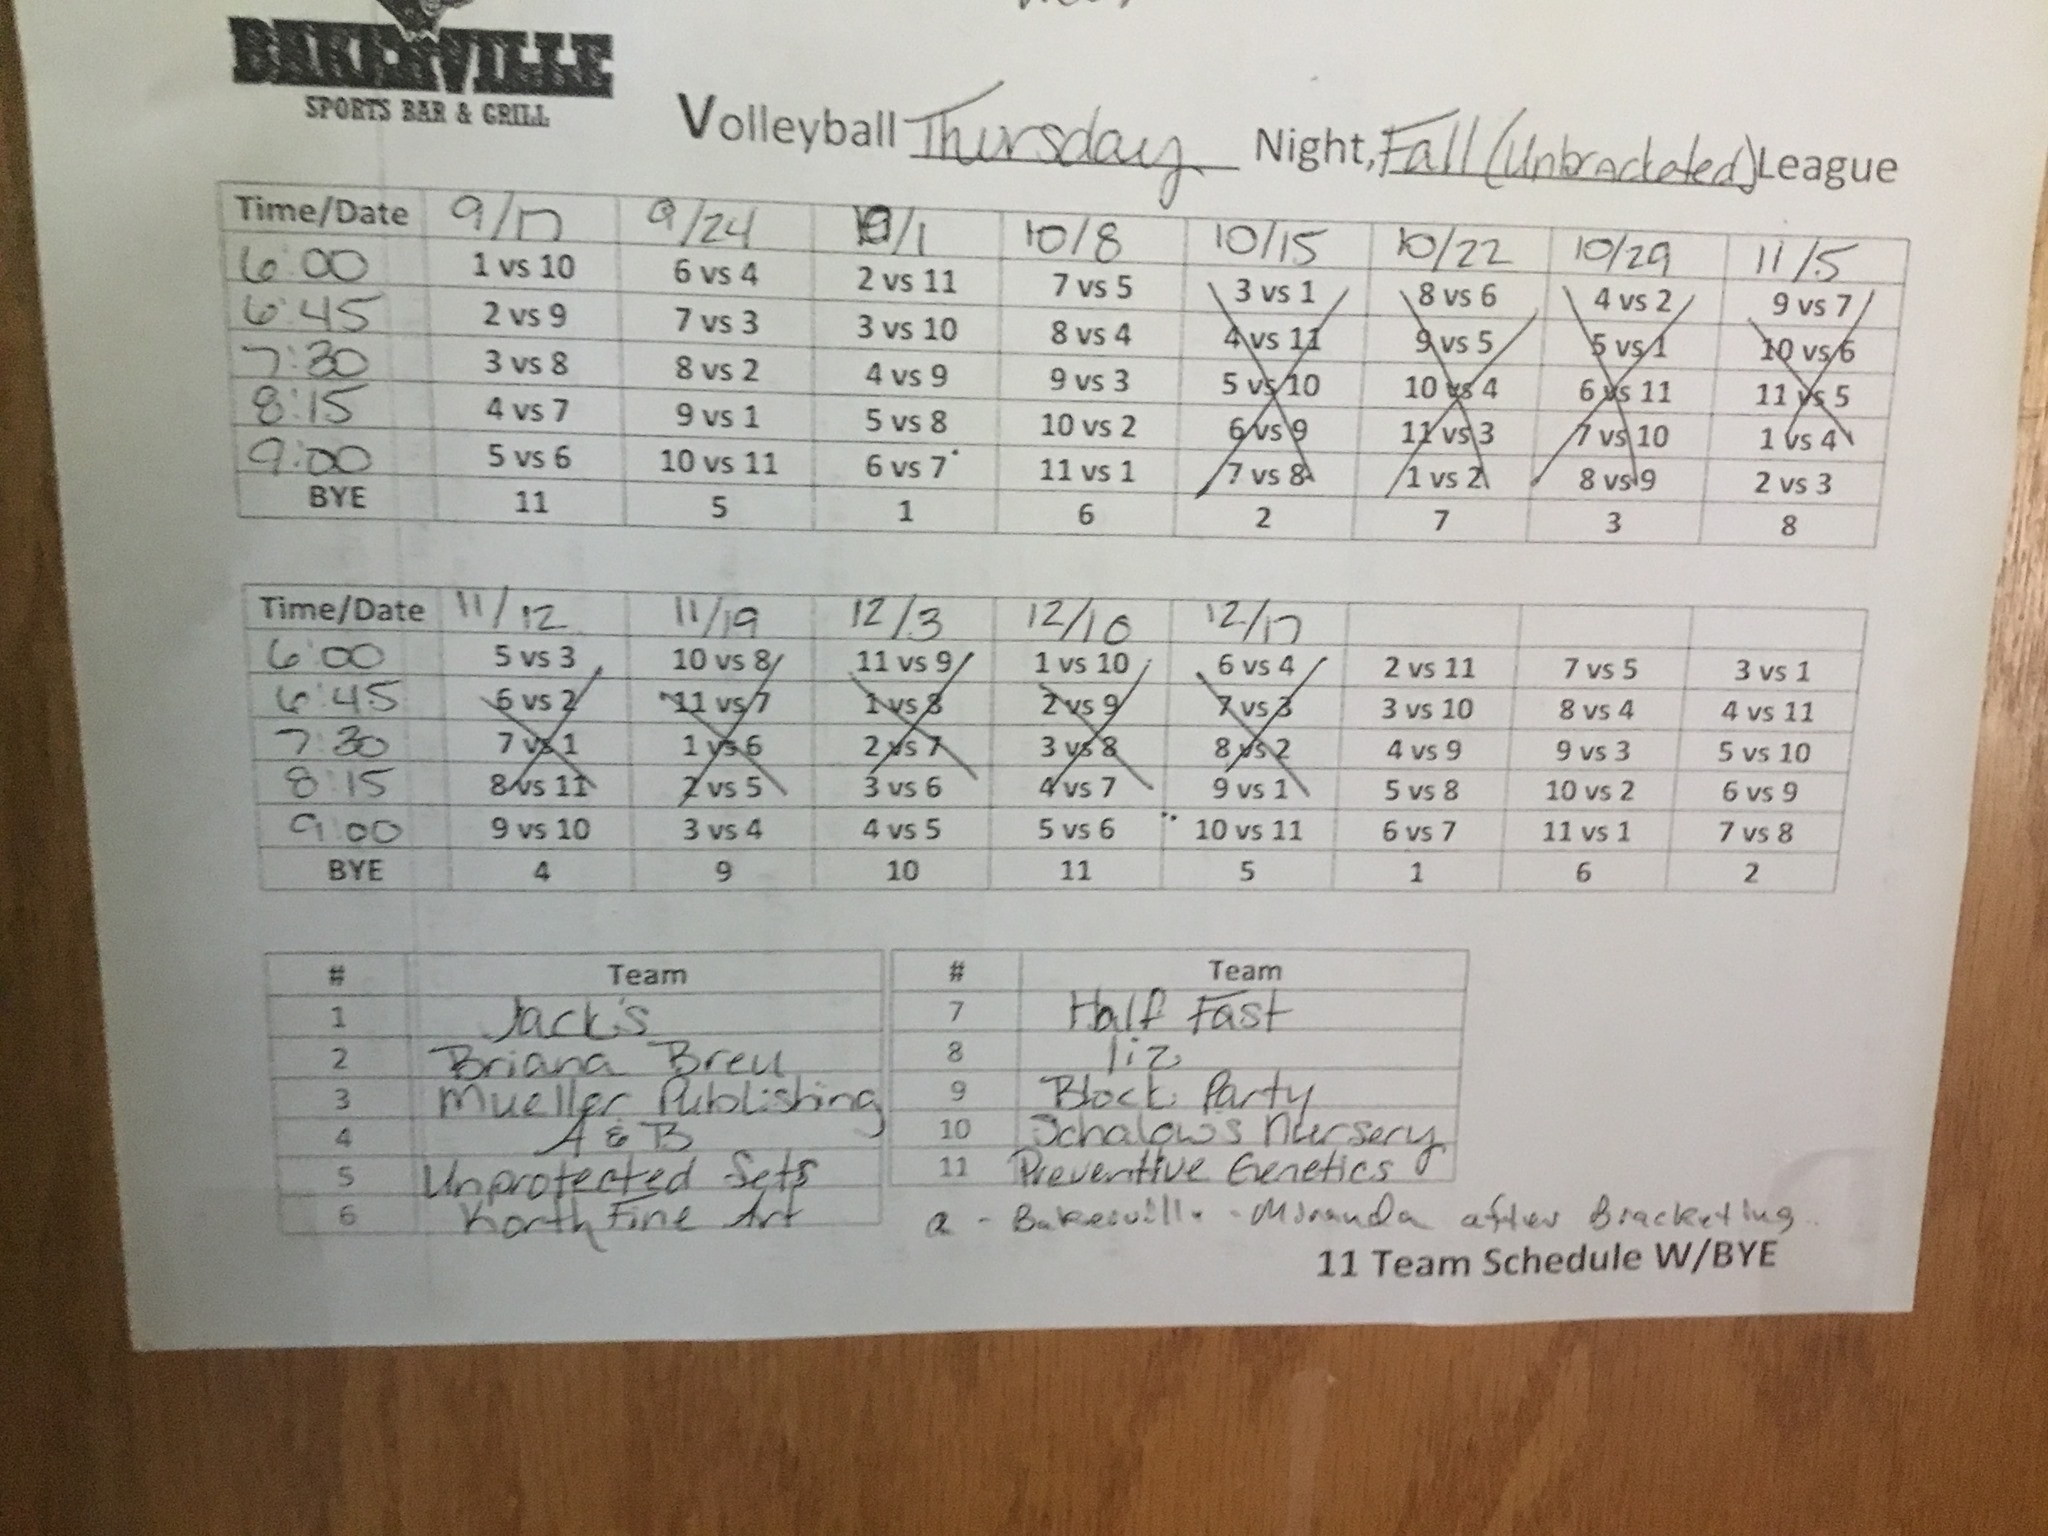 BAKERVILLE
SPORTS BAR & GRILL
Volleyball Thursday Night, Fall (Unbracketed) League
Time/Date 9/17 9/24 10/1 10/8 10/15 10/22 10/29 11/5
6:00 1 vs 10 6 vs 4 2 vs 11 7 vs 5 3 vs 1 8 vs 6 4 vs 2 9 vs 7
6:45 2 vs 9 7 vs 3 3 vs 10 8 vs 4 4 vs 11 9 vs 5 5 vs 1 10 vs 6
7:30 3 vs 8 8 vs 2 4 vs 9 9 vs 3 5 vs 10 10 vs 4 6 vs 11 11 vs 5
8:15 4 vs 7 9 vs 1 5 vs 8 10 vs 2 6 vs 9 11 vs 3 7 vs 10 1 vs 4
9:00 5 vs 6 10 vs 11 6 vs 7 11 vs 1 7 vs 8 1 vs 2 8 vs 9 2 vs 3
BYE 11 5 1 6 2 7 3 8
Time/Date 11/12 11/19 12/3 12/10 12/17
6:00 5 vs 3 10 vs 8 11 vs 9 1 vs 10 6 vs 4 2 vs 11 7 vs 5 3 vs 1
6:45 6 vs 2 11 vs 7 1 vs 8 2 vs 9 7 vs 3 3 vs 10 8 vs 4 4 vs 11
7:30 7 vs 1 1 vs 6 2 vs 7 3 vs 8 8 vs 2 4 vs 9 9 vs 3 5 vs 10
8:15 8 vs 11 2 vs 5 3 vs 6 4 vs 7 9 vs 1 5 vs 8 10 vs 2 6 vs 9
9:00 9 vs 10 3 vs 4 4 vs 5 5 vs 6 10 vs 11 6 vs 7 11 vs 1 7 vs 8
BYE 4 9 10 11 5 1 6 2
# Team # Team
1 Jack's 7 Half Fast
2 Briana Breu 8 liz
3 Mueller Publishing 9 Block Party
4 A & B 10 Schalow's Nursery
5 Unprotected Sets 11 Preventive Genetics
6 North Fine Art
a - Bakerville - Miranda after Bracketing
11 Team Schedule W/BYE